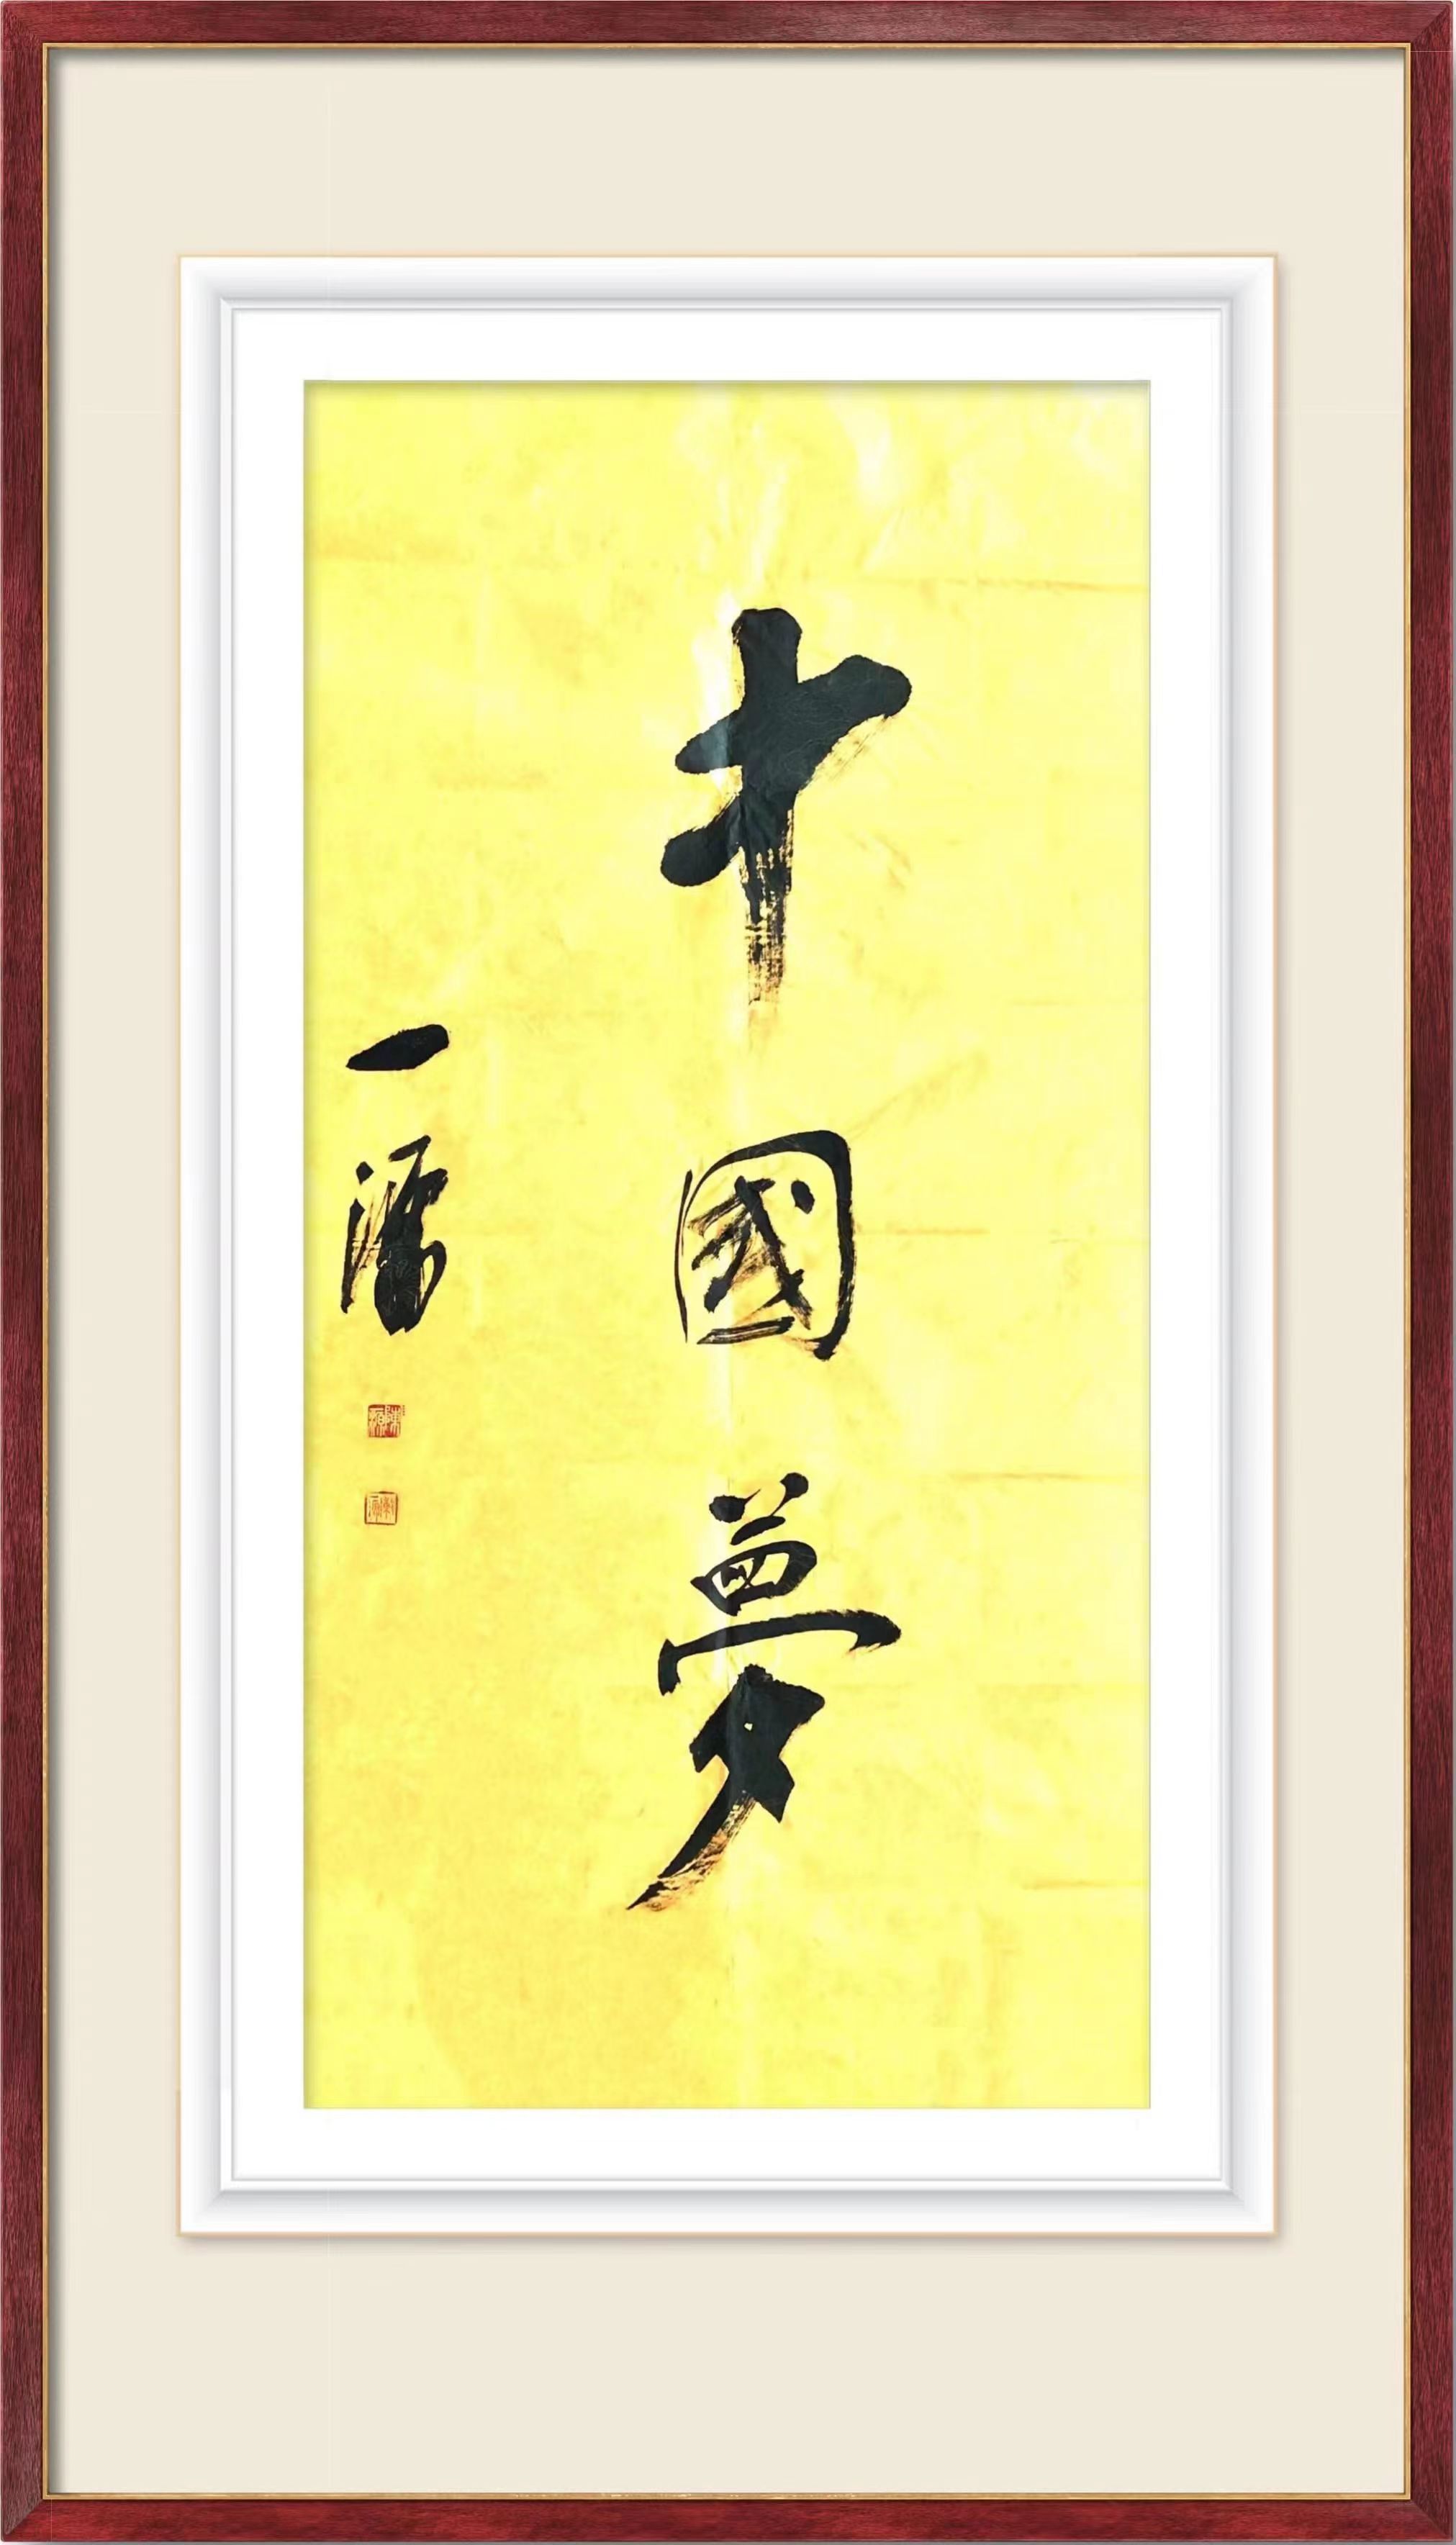 中國夢
一源